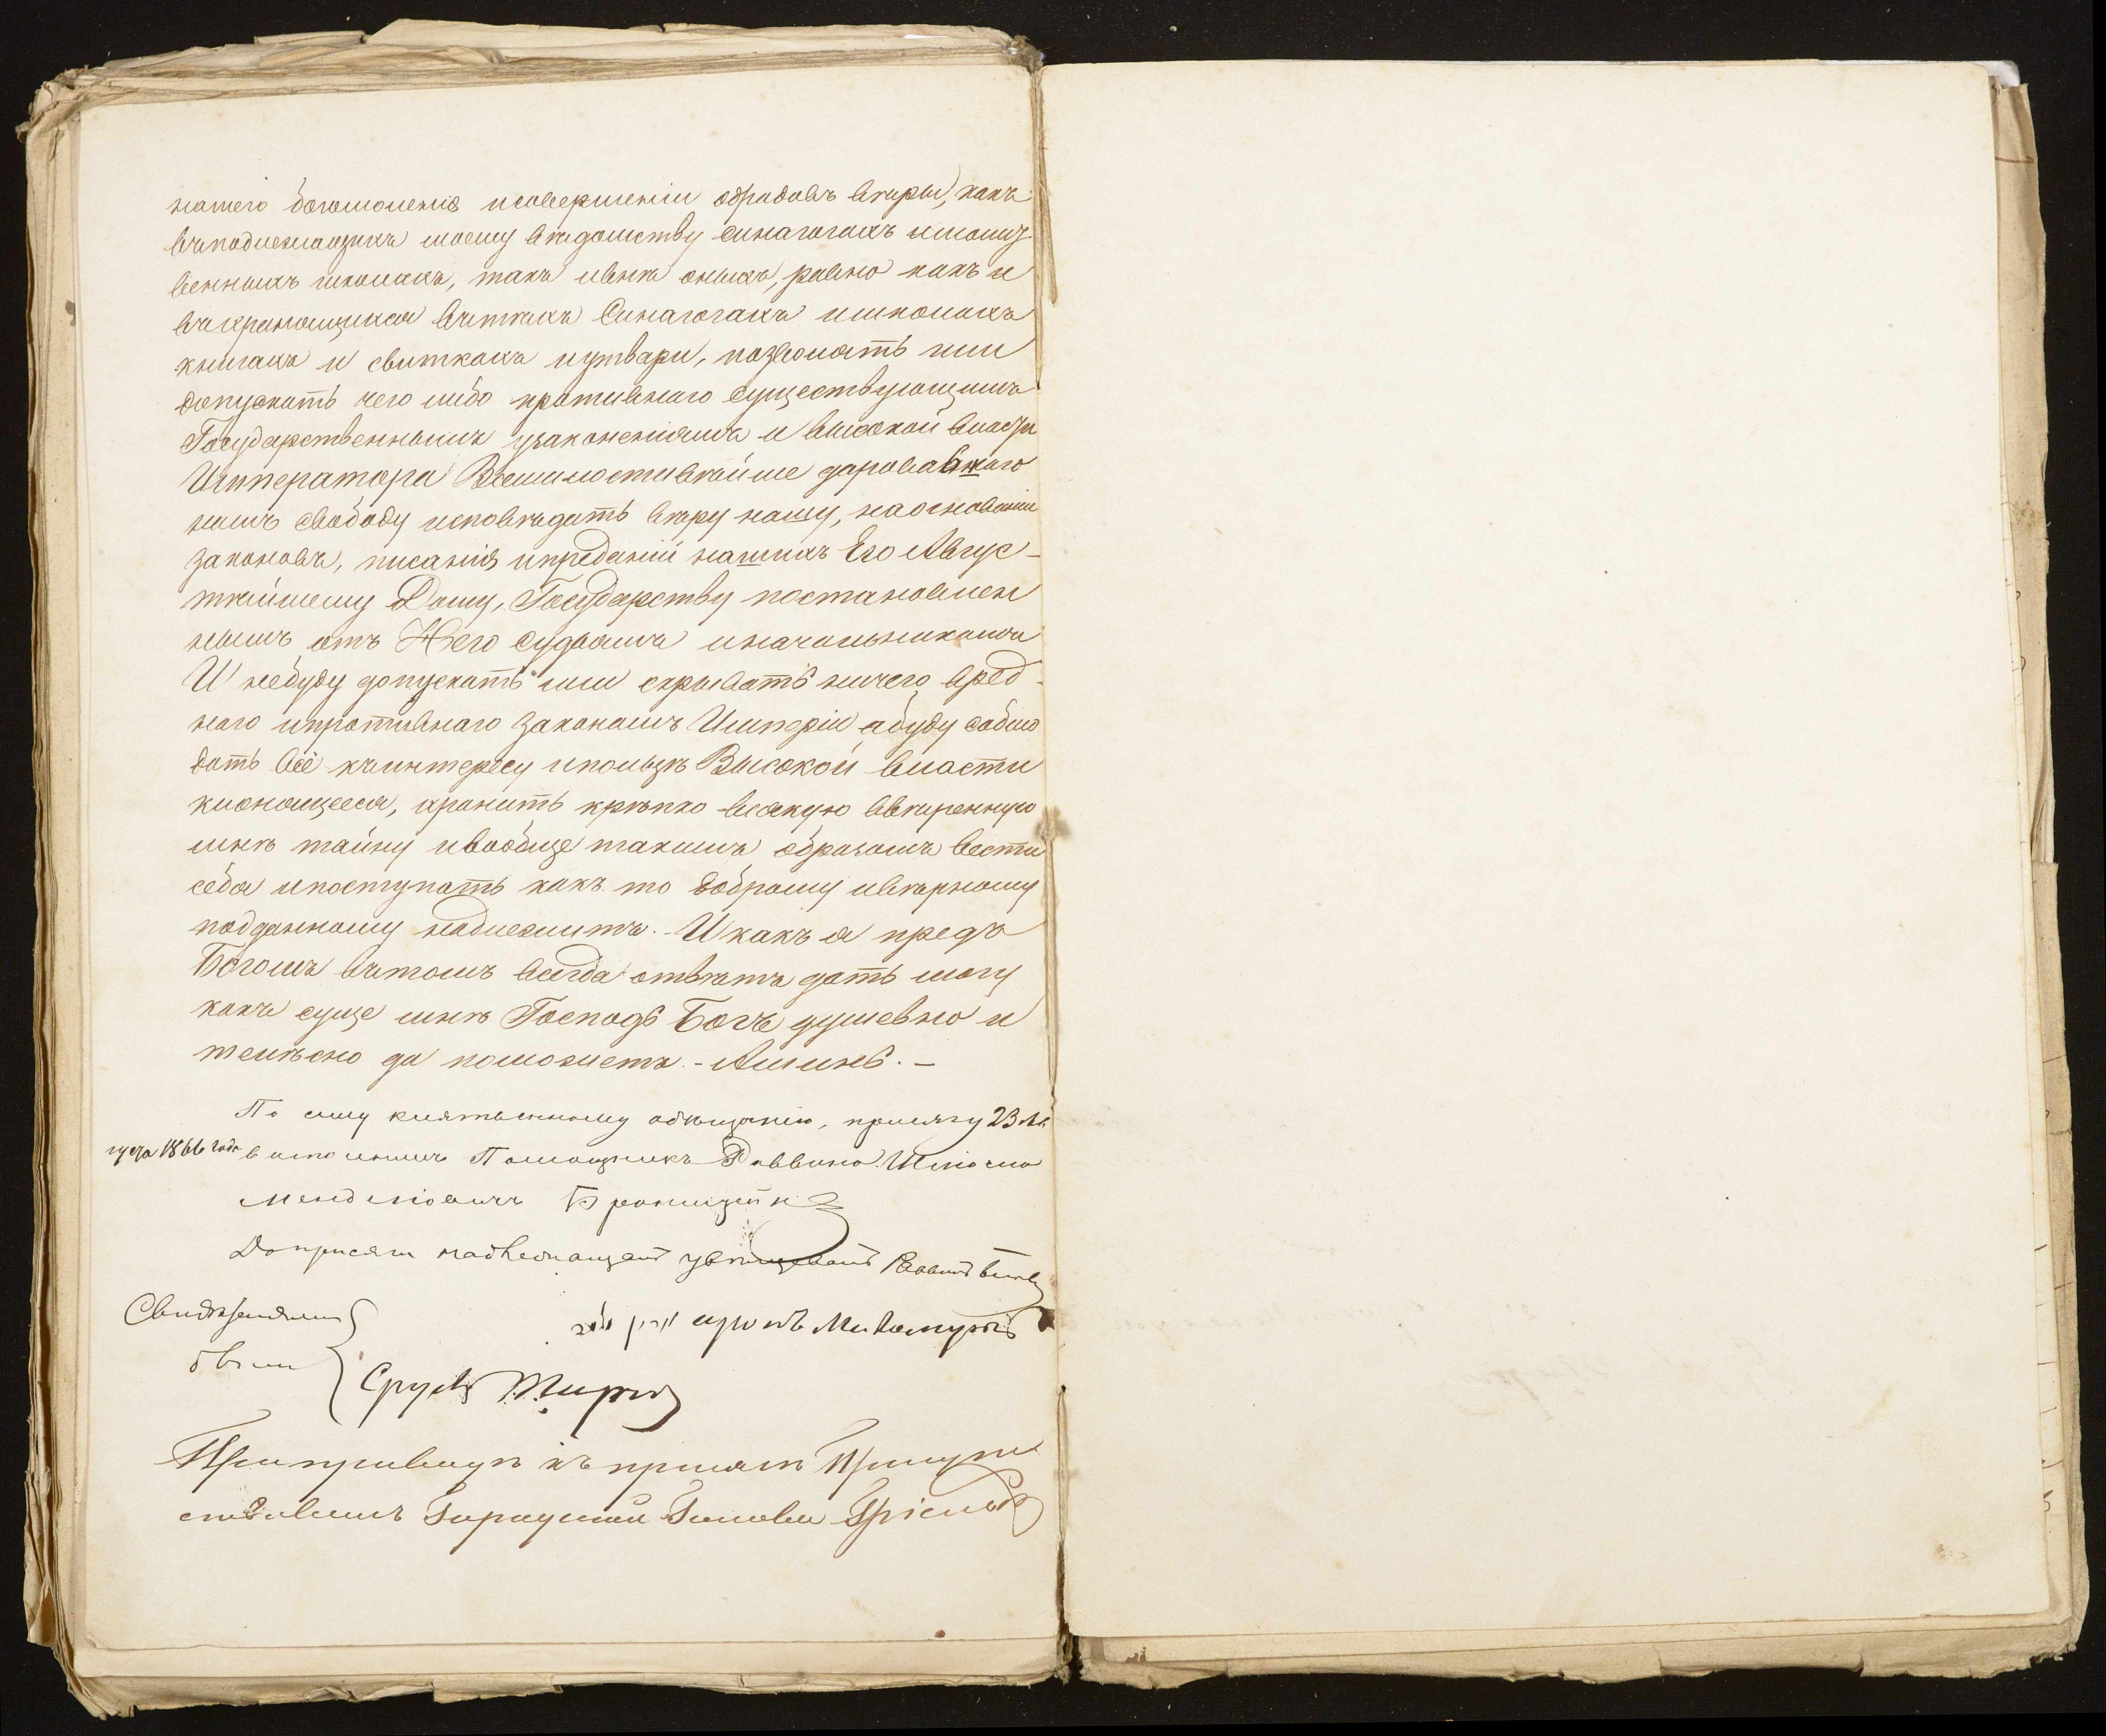 нашего богомоленія исовершеніи обрядовъ вѣры, какъ
въподлежащихъ моему вѣдомству синагогахъ имолит-
венныхъ школахъ, такъ ивнѣ оныхъ, равно какъ и
въхранящихся вътѣхъ Синагогахъ ишколахъ
книгахъ и свиткахъ иутвари, позволять или
допускать чего либо противнаго существующимъ
Государственнымъ узаконеніямъ и высокой власти
Императора Всемилостивѣйше даровавшаго
намъ свободу исповѣдать вѣру нашу, наоснованіи
законовъ, писанія ипреданій нашихъ Его Авгус-
тѣйшему Дому, Государству постановлен
нымъ отъ Него судьямъ иначальникамъ
И небуду допускать или скрывать ничего вред-
наго ипротивнаго законамъ Имперіи, абуду соблю
дать всё къинтересу ипользѣ Высокой власти
клонящееся, хранить крѣпко всякую ввѣренную
мнѣ тайну ивообще такимъ образомъ вести
себя ипоступать какъ то доброму ивѣрному
подданному надлежитъ. И какъ я предъ
Богомъ вътомъ всегда отвѣтъ дать могу
какъ суще мнѣ Господь Богъ душевно и
тѣлѣсно да поможетъ. - Аминь. -
По сему клятвенному обѣщанію, присягу 23 Ав
густа 1866 года выполнилъ Помощникъ Раввина Шлюма
Менделіовичъ
Доприсяги надлежащ увѣщевалъ Раввинъ
Свидѣтелями
были
Сруль
При приводѣ къ присягѣ Присут
ствовалъ Городской Голова